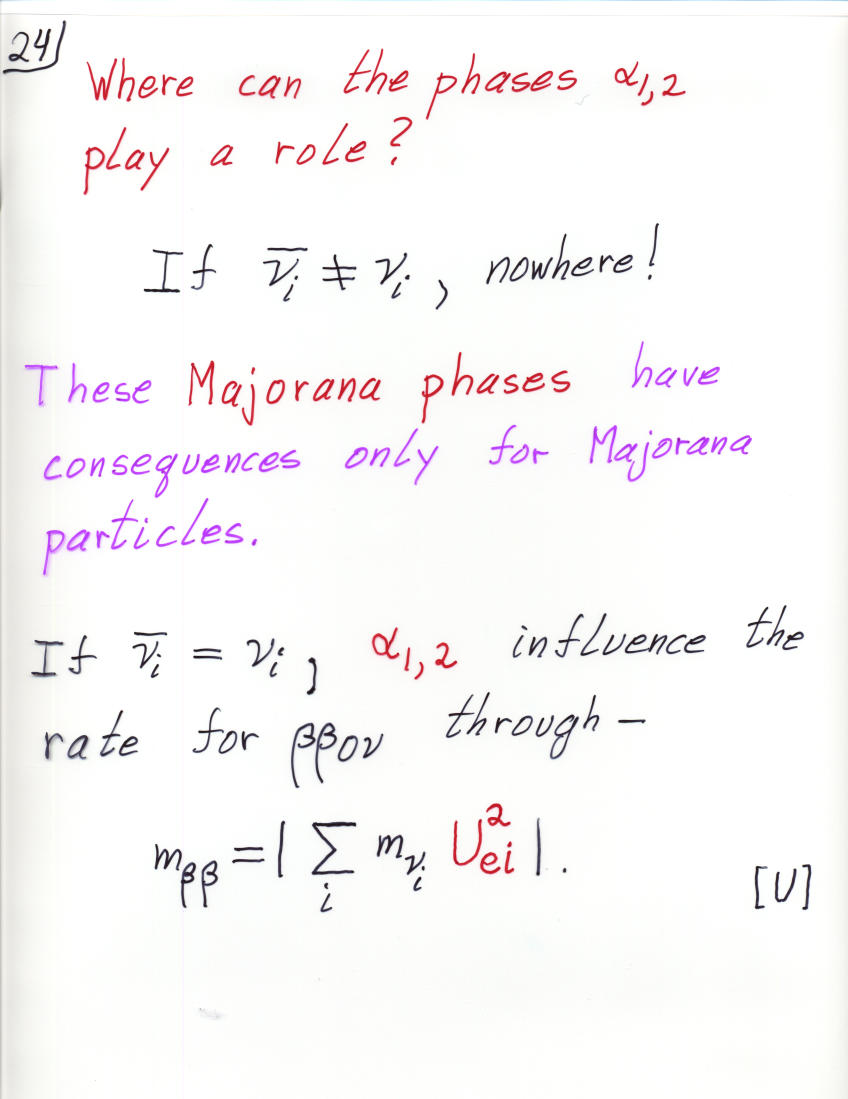 24
Where can the phases α1,2
play a role?
If ν̅i ≠ νi, nowhere!
These Majorana phases have
consequences only for Majorana
particles.
If ν̅i = νi, α1,2 influence the
rate for ββ0ν through –
mββ = | ∑i mνi U²ei | .
[U]